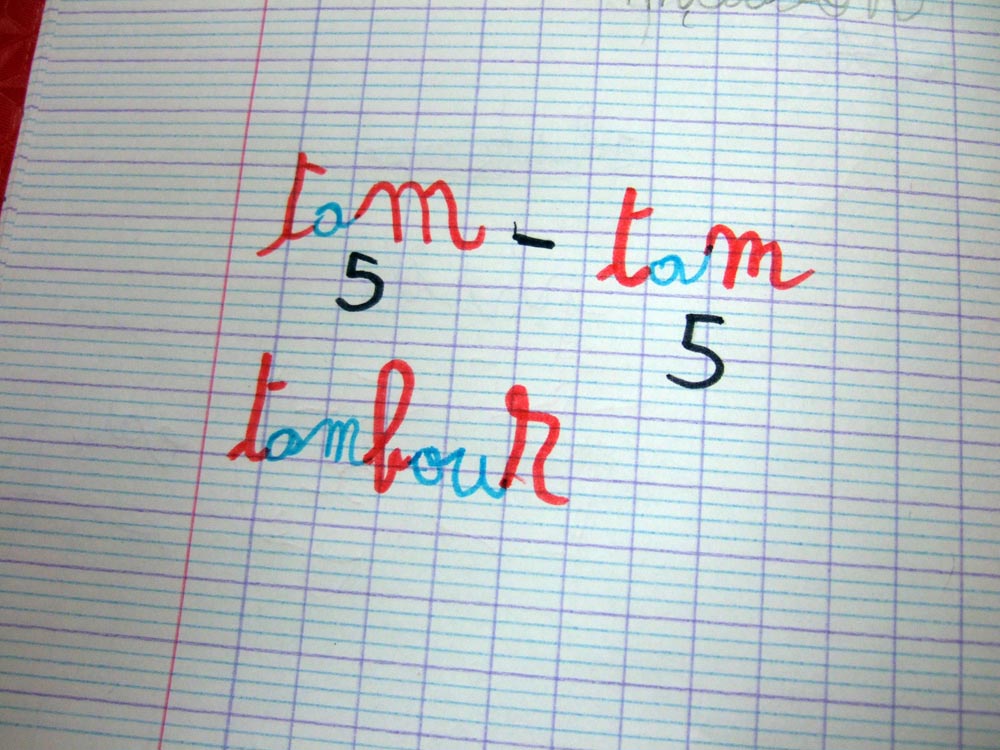 tam - tam
5 5
tambour